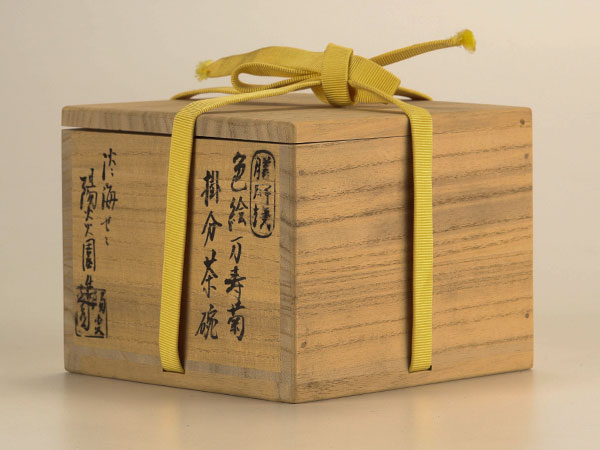 膳所焼
色絵万寿菊
掛分茶碗
淡海ぜゞ
陽炎園